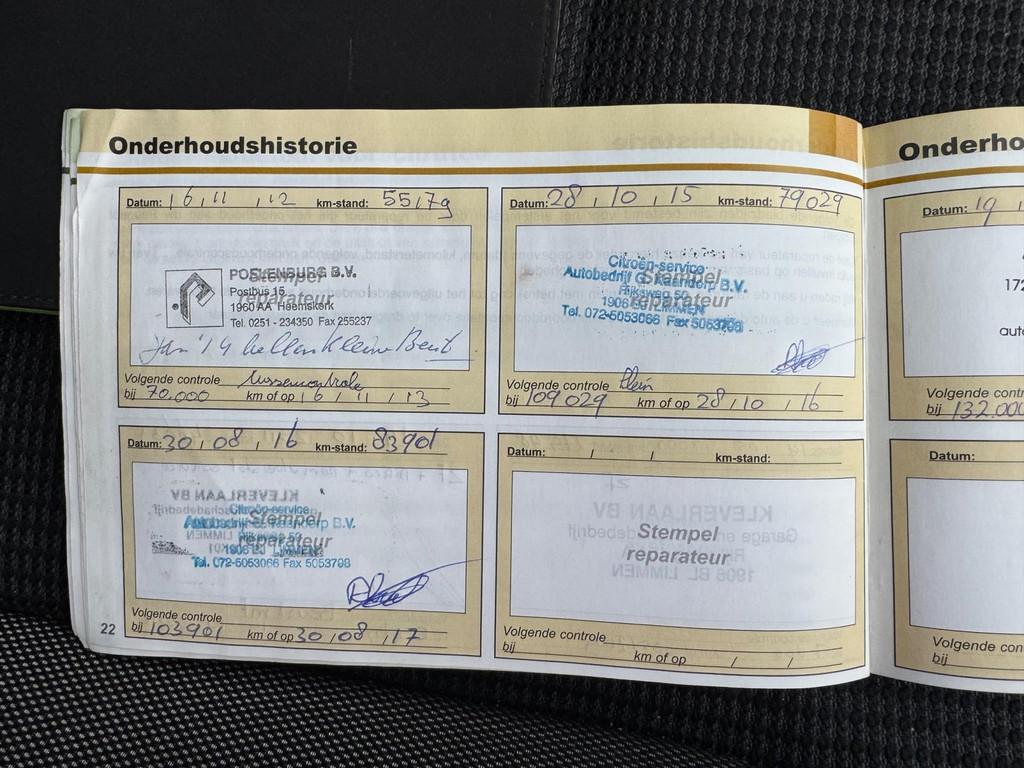 Onderhoudshistorie
Datum: 16, 11, 12 km-stand: 55179
POELENBURG B.V.
Stempel
Postbus 15
reparateur
1960 AA Heemskerk
Tel. 0251 - 234350 Fax 255237
Jan '14
Volgende controle
bij 70.000 km of op 16 / 11 / 13
Datum: 28, 10, 15 km-stand: 79029
Citroën-service
Stempel
Autobedrijf G. Kaandorp B.V.
Rijksweg 50
reparateur
1906 BL LIMMEN
Tel. 072-5053066 Fax 5053798
Volgende controle Klein
bij 109029 km of op 28 / 10 / 16
Datum: 30, 08, 16 km-stand: 83901
Citroën-service
Stempel
Autobedrijf G. Kaandorp B.V.
Rijksweg 50
reparateur
1906 BL LIMMEN
Tel. 072-5053066 Fax 5053798
Volgende controle
bij 103901 km of op 30 / 08 / 17
Datum: / / km-stand:
Stempel
reparateur
Volgende controle
bij km of op / /
22
Onderho
Datum: 19 /
172
auto
Volgende contr
bij 132.000
Datum:
Volgende con
bij